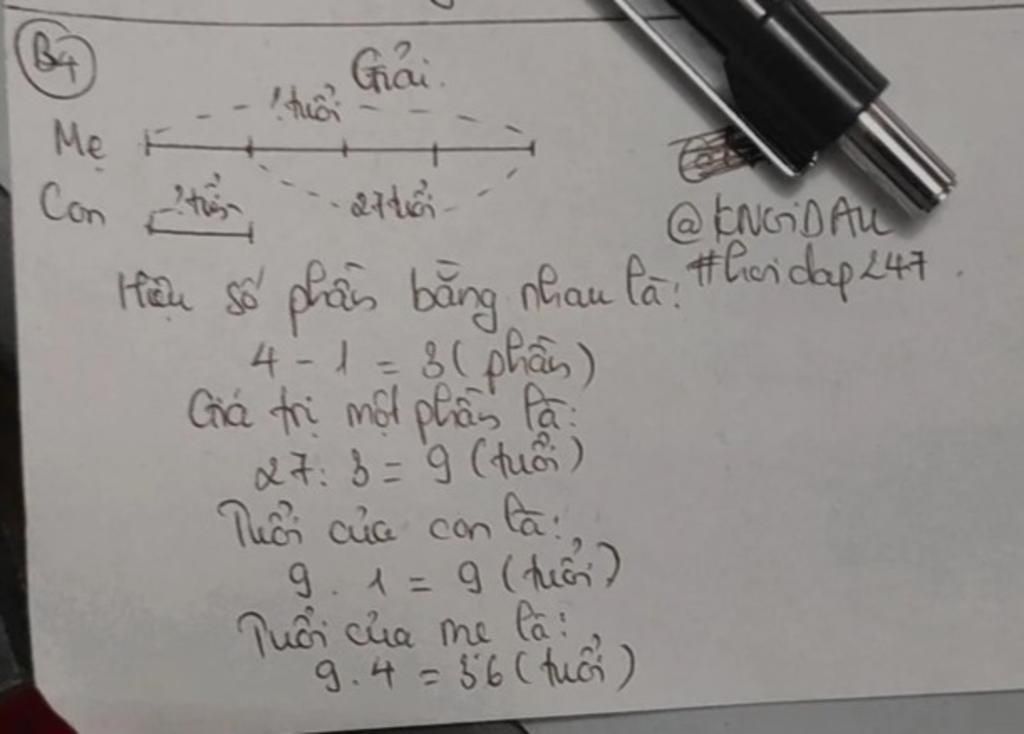 B4
Giải.
? tuổi
Mẹ
27 tuổi
Con
? tuổi
@KNGIDAU
#hoidap247.
Hiệu số phần bằng nhau là:
4 - 1 = 3 (phần)
Giá trị một phần là:
27 : 3 = 9 (tuổi)
Tuổi của con là:
9 . 1 = 9 (tuổi)
Tuổi của mẹ là:
9 . 4 = 36 (tuổi)